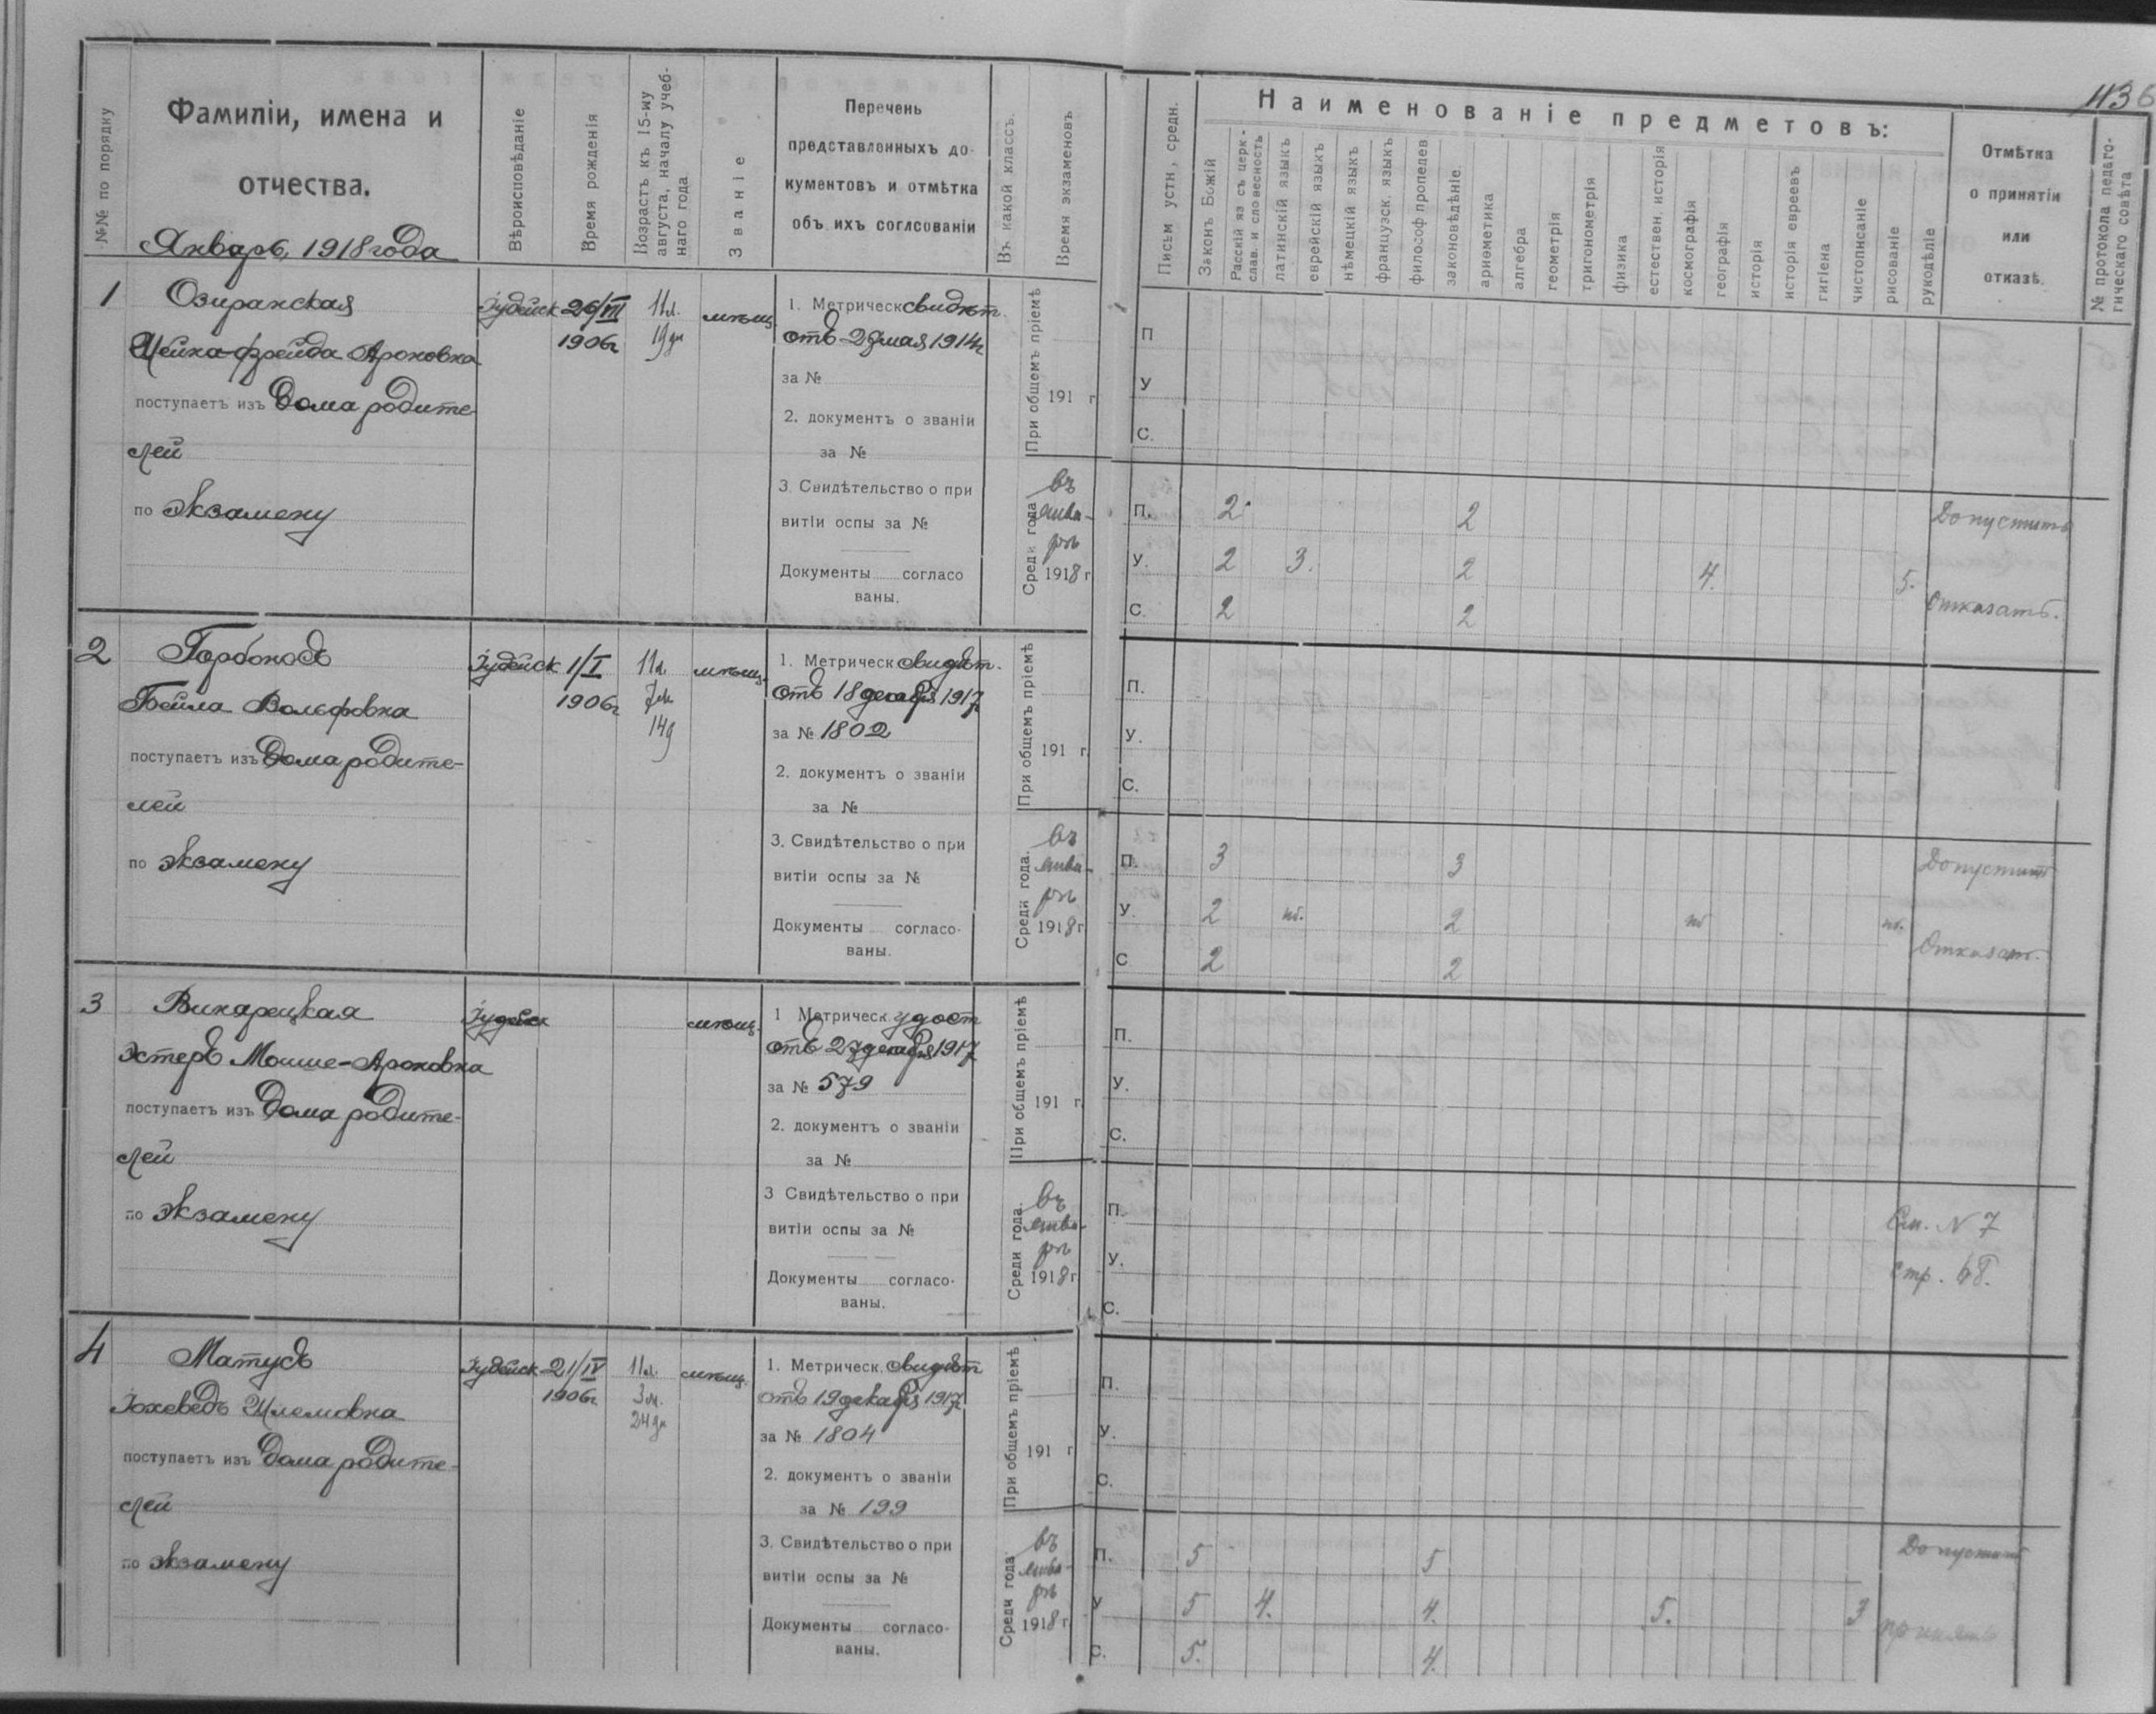 1136
№№ по порядку
Фамиліи, имена и
отчества.
Январь, 1918 года
Вѣроисповѣданіе
Время рожденія
Возрастъ къ 15-му
августа, началу учеб-
наго года
Званіе
Перечень
представленныхъ до-
кументовъ и отмѣтка
объ ихъ соглсованіи
Въ какой классъ.
Время экзаменовъ
Письм устн, средн.
Наименованіе предметовъ:
Законъ Божій
Расскій яз съ церк-
слав. и словесность
латинскій языкъ
еврейскій языкъ
нѣмецкій языкъ
француззск. языкъ
философ пропедев
законовѣдѣніе
ариѳметика
алгебра
геометрія
тригонометрія
физика
естествен. исторія
космографія
географія
исторія
исторія евреевъ
гигіена
чистописаніе
рисованіе
рукодѣліе
Отмѣтка
о принятіи
или
отказѣ.
№ протокола педаго-
гическаго совѣта
1 Озиранская
Шейна-Фрейда Ароновна
поступаетъ изъ Дома родите-
лей
по экзамену
Іудейск 26/VII
1906г
11л.
19дн
мѣщ.
1. Метрическ свидѣт.
отъ 29 мая 1914г
за №
2. документъ о званіи
за №
3. Свидѣтельство о при
витіи оспы за №
Документы согласо
ваны.
При общемъ пріемѣ
191 г
Среди года
въ
янва-
рѣ
1918 г
П
У
С.
П. 2 2 Допустить
У. 2 3. 2 4. 5.
С. 2 2 Отказать.
2 Горбоносъ
Бейла Вольфовна
поступаетъ изъ Дома родите-
лей
по экзамену
Іудейск 1/I
1906г
11л.
7м
14д
мѣщ.
1. Метрическ свидѣт.
отъ 18 декабря 1917г
за № 1802
2. документъ о званіи
за №
3. Свидѣтельство о при
витіи оспы за №
Документы согласо-
ваны.
При общемъ пріемѣ
191 г.
Среди года.
въ
янва-
рѣ
1918 г
П.
У.
С.
П. 3 3 Допустить
У. 2 нб. 2 нб нб.
С 2 2 Отказать.
3 Винарецкая
Эстеръ Мойше-Ароновна
поступаетъ изъ Дома родите-
лей
по экзамену
Іудейск
мѣщ.
1 Метрическ. удост
отъ 27 декабря 1917
за № 579
2. документъ о званіи
за №
3 Свидѣтельство о при
витіи оспы за №
Документы согласо-
ваны.
При общемъ пріемѣ
191 г.
Среди года.
въ
янва-
рѣ
1918 г
П.
У.
С.
П. См. N 7
У. стр. 68.
С.
4 Матусъ
Іохеведъ Шлемовна
поступаетъ изъ Дома родите-
лей
по экзамену
Іудейск 21/IV
1906г
11л.
3м.
24дн
мѣщ.
1. Метрическ. свидѣт
отъ 19 декабря 1917г
за № 1804
2. документъ о званіи
за № 199
3. Свидѣтельство о при
витіи оспы за №
Документы согласо-
ваны.
При общемъ пріемѣ
191 г
Среди года.
въ
янва-
рѣ
1918 г
П.
У.
С.
П. 5 5 Допустить
У 5 4. 4. 5. 3
С. 5. 4. принять